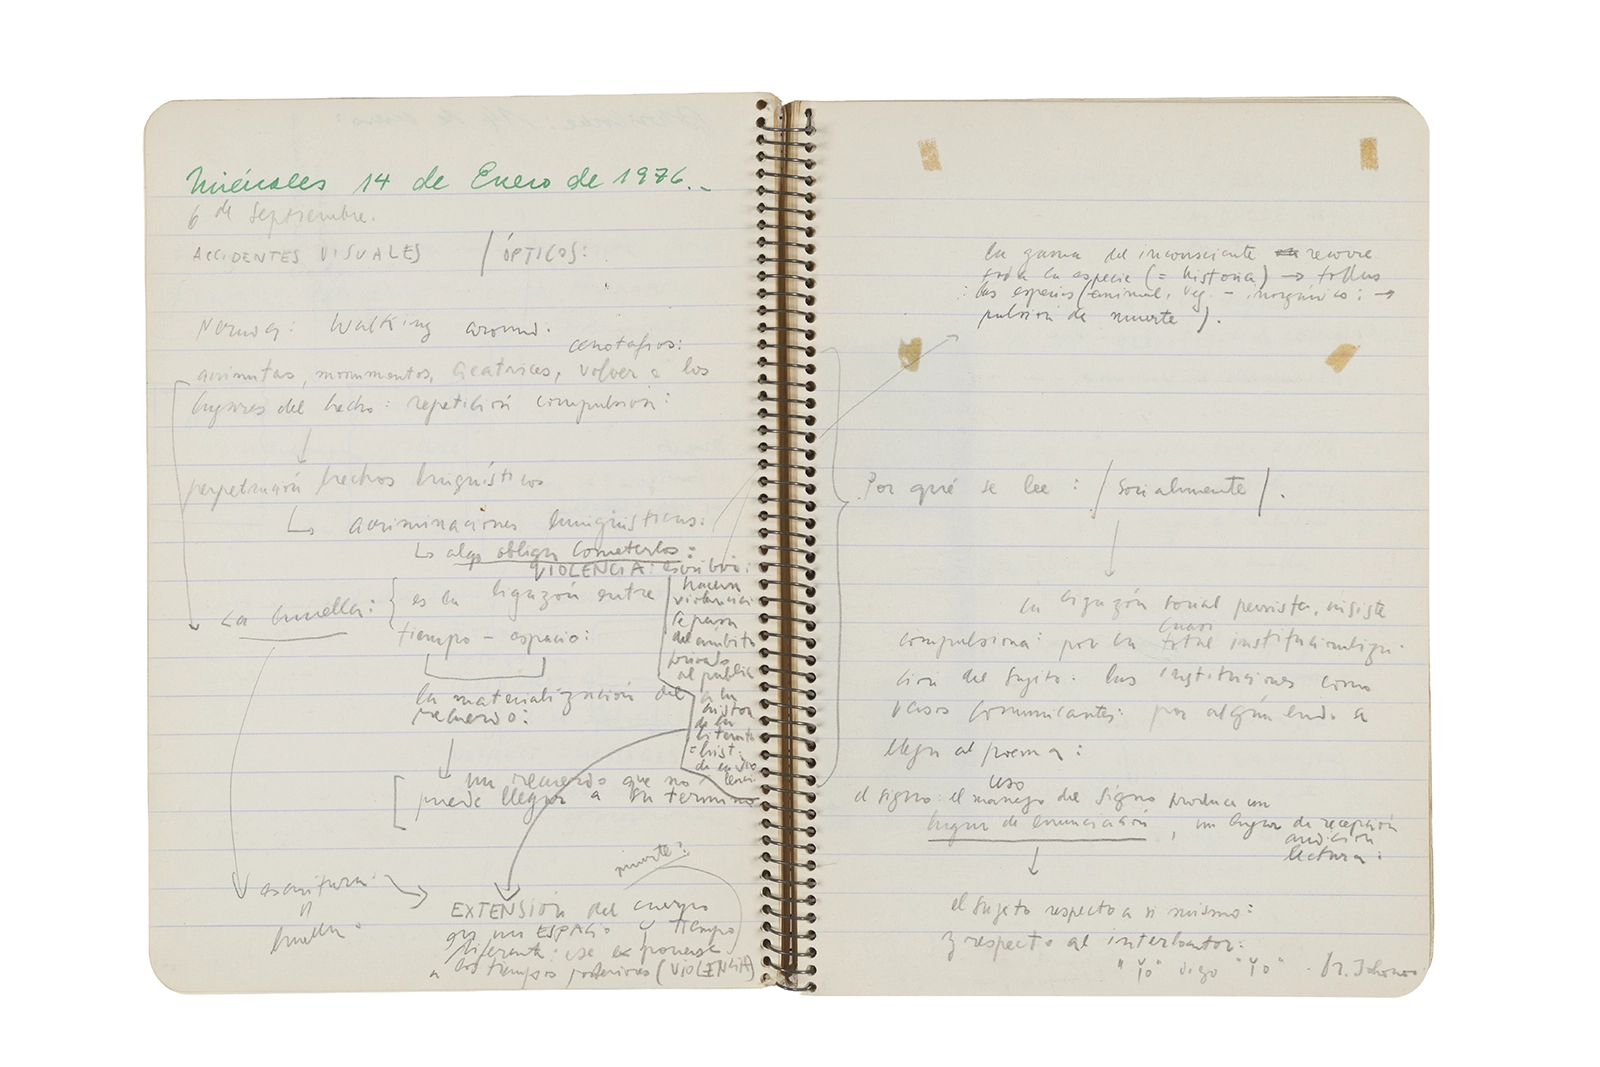 Miércoles 14 de Enero de 1976.-
6 de Septiembre.
ACCIDENTES VISUALES / ÓPTICOS:
Neruda: Walking around.
cenotafios:
animitas, monumentos, cicatrices, volver a los
lugares del hecho: repetición compulsión:
perpetración hechos lingüísticos
↳ acriminaciones lingüísticas:
↳ algo obliga cometerlos:
VIOLENCIA: escribir:
hacerse
violencia
se pasa
del ámbito
privado
al público
a la
histor
de la
literat
= hist.
de la vio
lencia
La huella: { es la ligazón entre
tiempo - espacio:
la materialización del
recuerdo:
un recuerdo que no
puede llegar a su término
escritura →
huella.
muerte:
EXTENSION del cuerpo
en un ESPACIO y tiempo
diferente: es exponerse
a los tiempos posteriores (VIOLENCIA)
la gama del inconsciente recorre
toda la especie (= historia) → todas
las especies (animal, veg. - inorgánico: →
pulsión de muerte).
Por qué se lee: / socialmente /.
la ligazón social persiste, insiste
compulsiona: por la cuasi total institucionaliza-
ción del sujeto: las instituciones como
vasos comunicantes: por algún lado a
llegar al poema:
uso
el signo: el manejo del signo produce un
lugar de enunciación, un lugar de recepción
audición
lectura:
el sujeto respecto a si mismo:
y respecto al interlocutor:
"Yo" digo "Yo" .